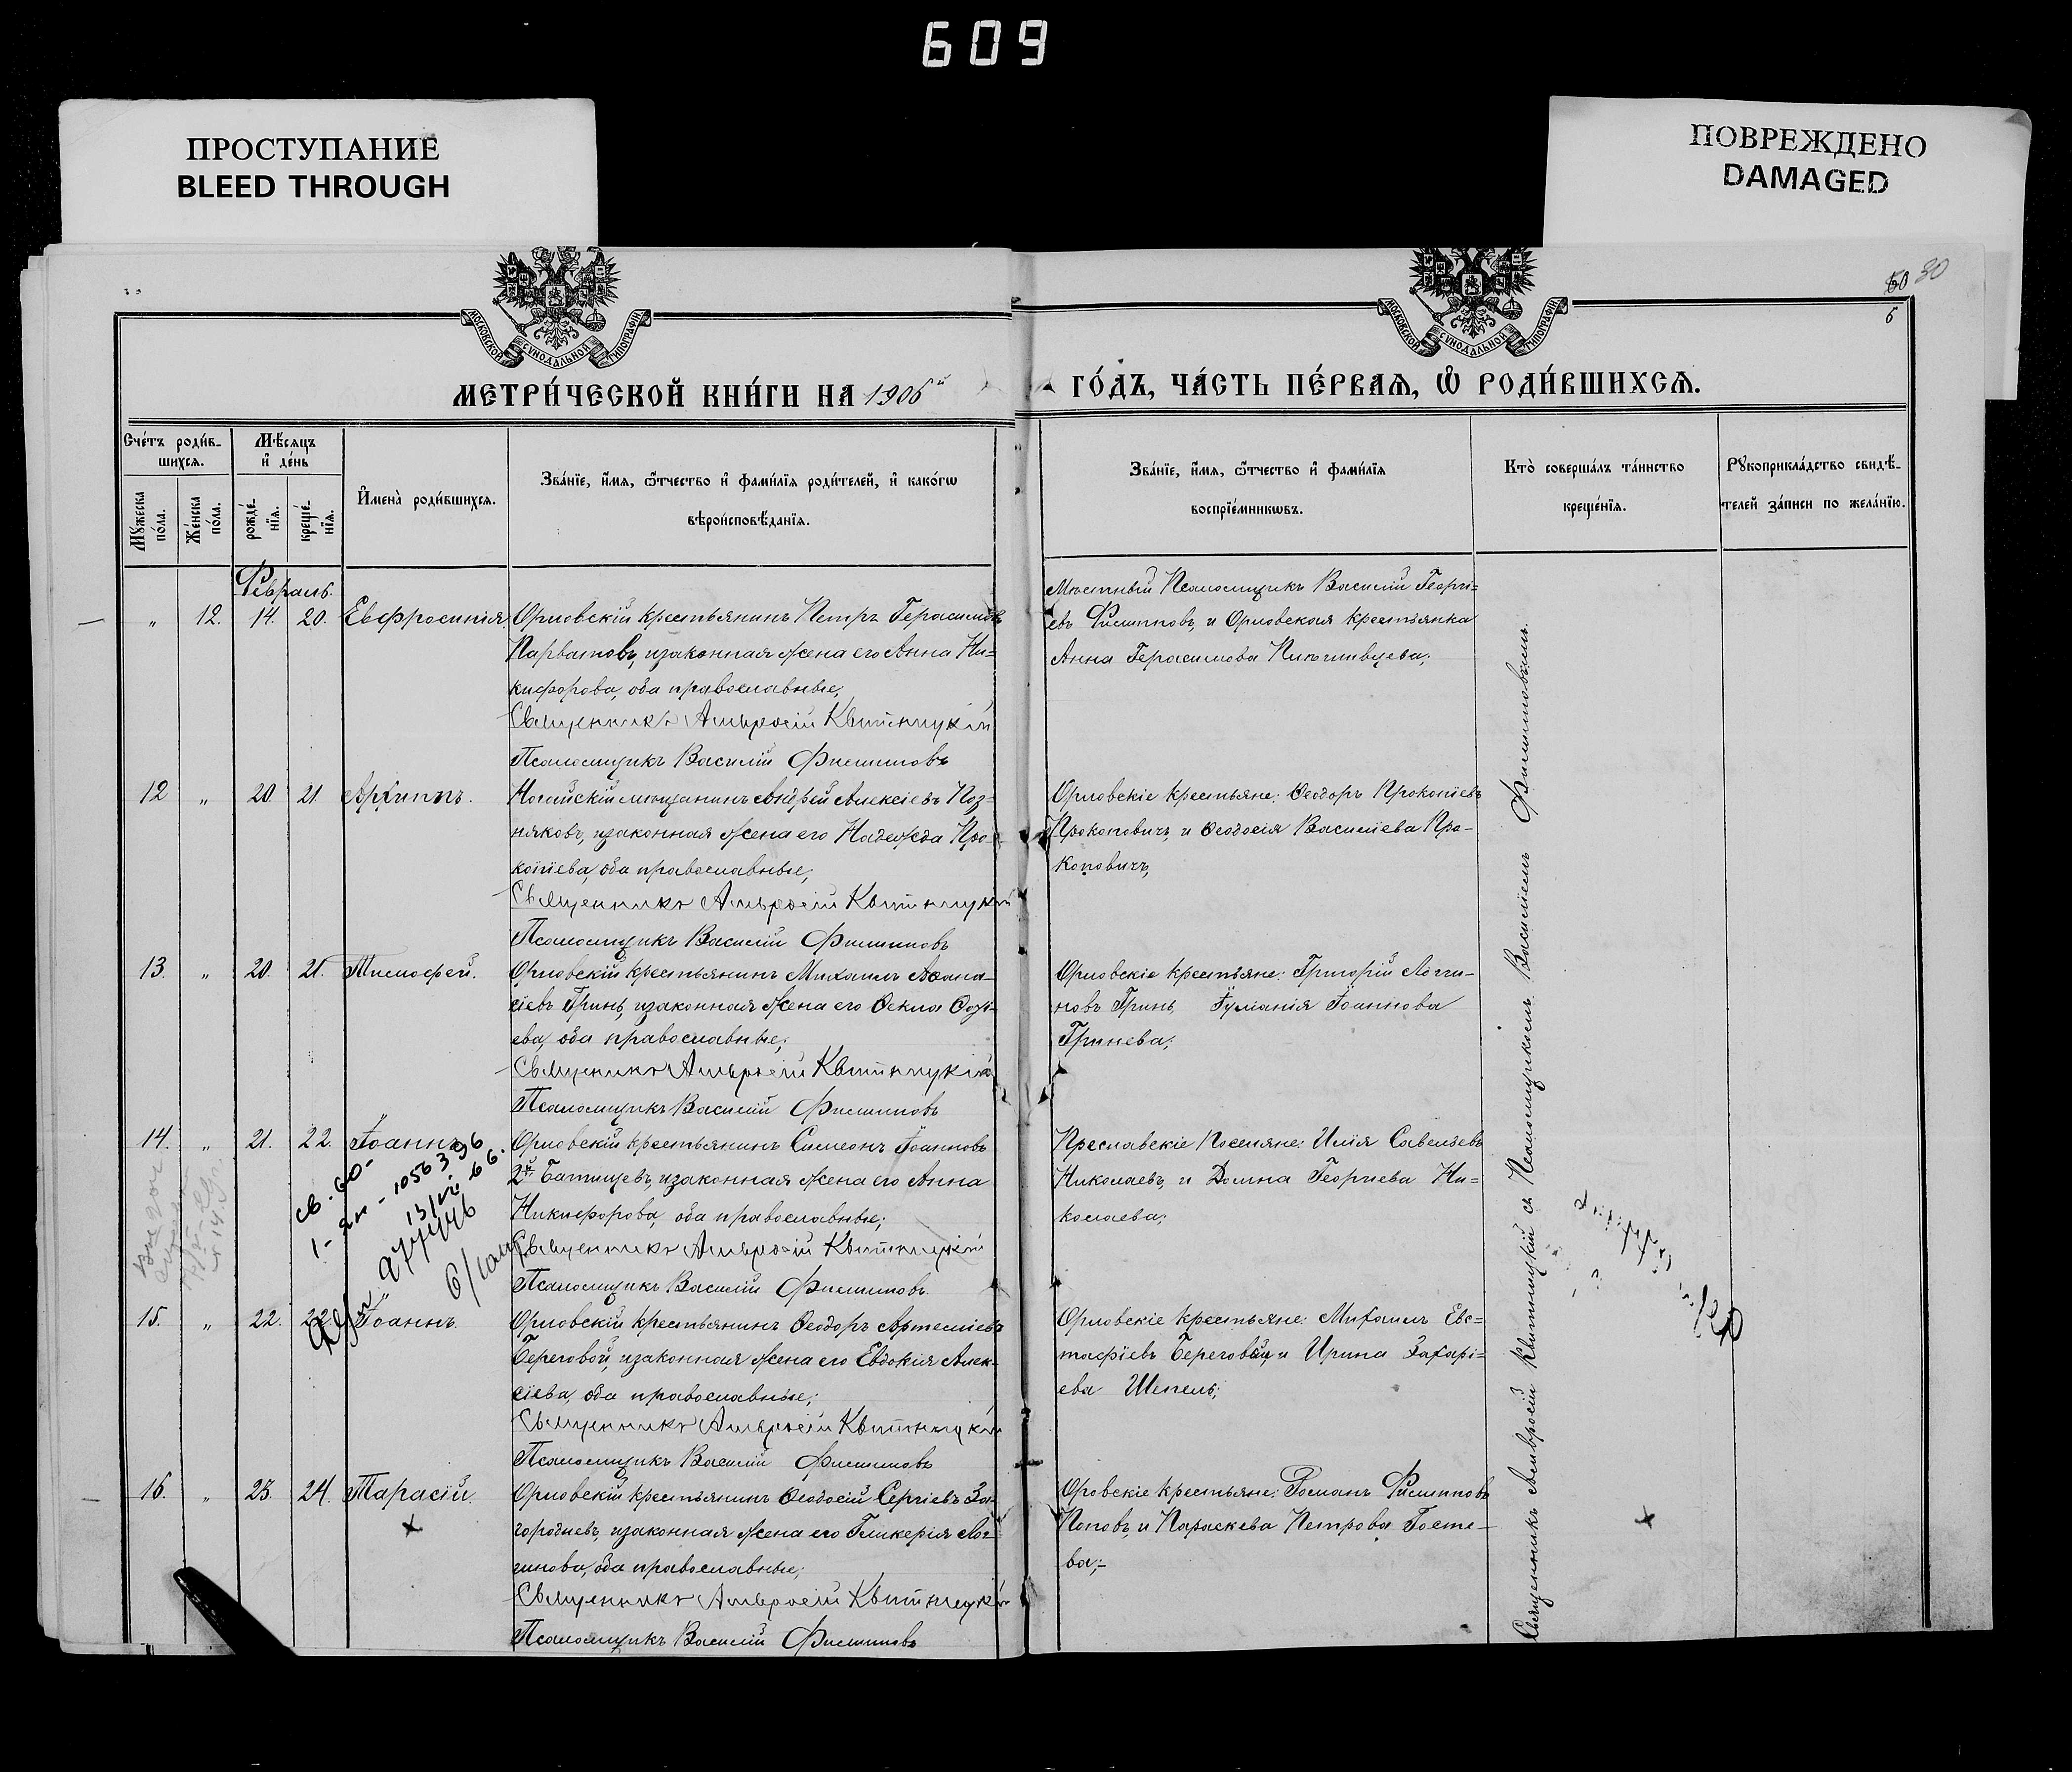 609
ПРОСТУПАНИЕ
BLEED THROUGH
ПОВРЕЖДЕНО
DAMAGED
60 30
6
МОСКОВСКОЙ СѴНОДАЛЬНОЙ ТИПОГРАФІИ
МОСКОВСКОЙ СѴНОДАЛЬНОЙ ТИПОГРАФІИ
МЕТРИ́ЧЕСКОЙ КНИ́ГИ НА 1906й ГО́ДЪ, ЧА́СТЬ ПЕ́РВАѦ, Ѡ҆ РОДИ́ВШИХСѦ.
Сче́тъ роди́в-
шихсѧ.
Мѣ́сѧцъ
и҆ де́нь
Мꙋ́жеска
по́ла.
Же́нска
по́ла.
рожде́-
нїѧ.
креще́-
нїѧ.
И҆мена̀ роди́вшихсѧ.
Зва́нїе, и҆́мѧ, ѻ҆́тчество и҆ фами́лїѧ роди́телей, и҆ како́гѡ
вѣроисповѣ́данїѧ.
Зва́нїе, и҆́мѧ, ѻ҆́тчество и҆ фами́лїѧ
воспрїе́мникѡвъ.
Кто̀ соверша́лъ та́инство
креще́нїѧ.
Рꙋкоприкла́дство свидѣ́-
телей за́писи по жела́нїю.
Февраль.
„ 12. 14. 20. Евфросинія
Орловскій крестьянинъ Петръ Герасимовъ
Парватовъ, изаконная жена его Анна Ни=
кифорова, оба православные;
Священникъ Амвросій Квитницкій
Псаломщикъ Василій Филипповъ
Мѣстный Псаломщикъ Василій Георгі=
евъ Филипповъ, и Орловская крестьянка
Анна Герасимова
12 „ 20. 21. Архиппъ.
Ногайскій мѣщанинъ Андрей Алексіевъ Поз-
няковъ, изаконная жена его Надежда Про-
копіева, оба православные;
Священникъ Амвросій Квитницкій
Псаломщикъ Василій Филипповъ
Орловскіе крестьяне: Ѳеодоръ Прокопіевъ
Прокоповичъ, и Ѳеодосія Василіева Про-
коповичъ,
13. „ 20. 21. Тимоѳей.
Орловскій крестьянинъ Михаилъ Аѳана-
сіевъ Гринь, изаконная жена его Ѳекла
ева, оба православные;
Священникъ Амвросій Квитницкій
Псаломщикъ Василій Филипповъ
Орловскіе крестьяне: Григорій Логги-
новъ Гринь, Іуліанія Іоаннова
Гринева;
14. „ 21. 22. Іоаннъ
Орловскій крестьянинъ Симеонъ Іоанновъ
2й Батищевъ, изаконная жена его Анна
Никифорова, оба православные;
Священникъ Амвросій Квитницкій
Псаломщикъ Василій Филипповъ.
Преславскіе Поселяне: Илія Савеліевъ
Николаевъ, и Домна Георгіева Ни=
колаева;
св. 60-
1-ЯИ-1056396
13/VII. 66.
15. „ 22. 22. Іоаннъ.
Орловскій крестьянинъ Ѳеодоръ Артеміевъ
Береговой, изаконная жена его Евдокія Алек-
сіева, оба православные;
Священникъ Амвросій Квитницкій
Псаломщикъ Василій Филипповъ
Орловскіе крестьяне: Михаилъ Евс=
тафіевъ Береговой, и Ирина Захарі=
ева Шепель;
16. „ 23. 24. Тарасій.
Орловскій крестьянинъ Ѳеодосій Сергіевъ За-
городневъ, изаконная жена его Гликерія Лог-
гинова, оба православные;
Священникъ Амвросій Квитницкій
Псаломщикъ Василій Филипповъ
Оровскіе крестьяне: Романъ Филипповъ
Поповъ, и Параскева Петрова Госте-
ва;-
Священникъ Амвросій Квитницкій съ Псаломщикомъ Василіемъ Филипповымъ.